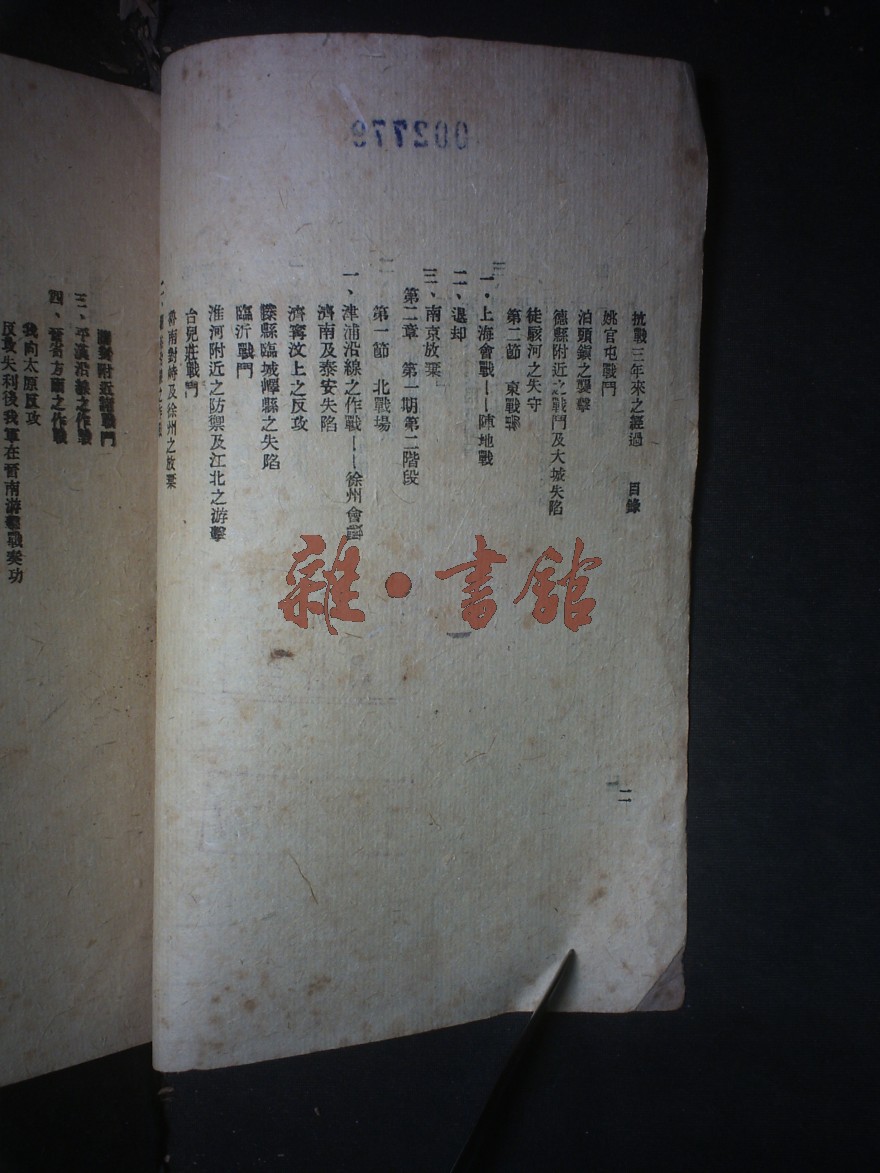 抗戰三年來之經過　目錄
二
姚官屯戰鬥
泊頭鎮之襲擊
德縣附近之戰鬥及大城失陷
徒駭河之失守
第二節　東戰場
一・上海會戰——陣地戰
二、退却
三、南京放棄
第二章　第一期第二階段
第一節　北戰場
一、津浦沿線之作戰——徐州會戰
濟南及泰安失陷
濟寧汶上之反攻
滕縣臨城嶧縣之失陷
臨沂戰鬥
淮河附近之防禦及江北之游擊
台兒莊戰鬥
魯南對峙及徐州之放棄
附近諸戰鬥
三、平漢沿線之作戰
四、晉省方面之作戰
我向太原反攻
反攻失利後我軍在晉南游擊戰奏功
002779
雜・書館